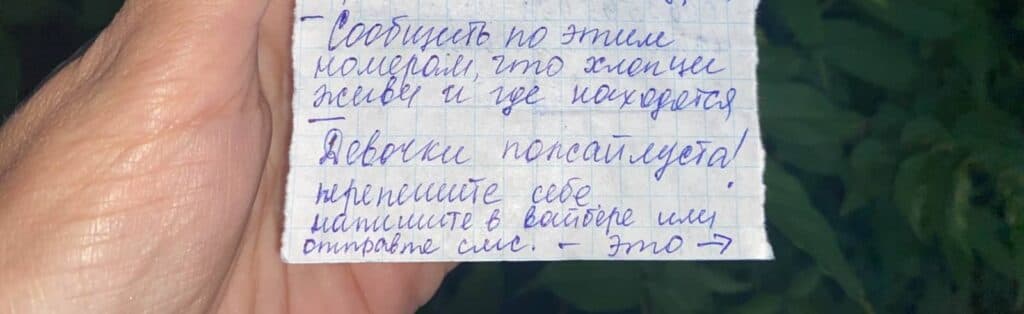 – Сообщить по этим
номерам, что хлопцы
живы и где находятся
–
Девочки попсайлуста!
перепешите себе,
напишите в вайбере или
отправте смс. – это →